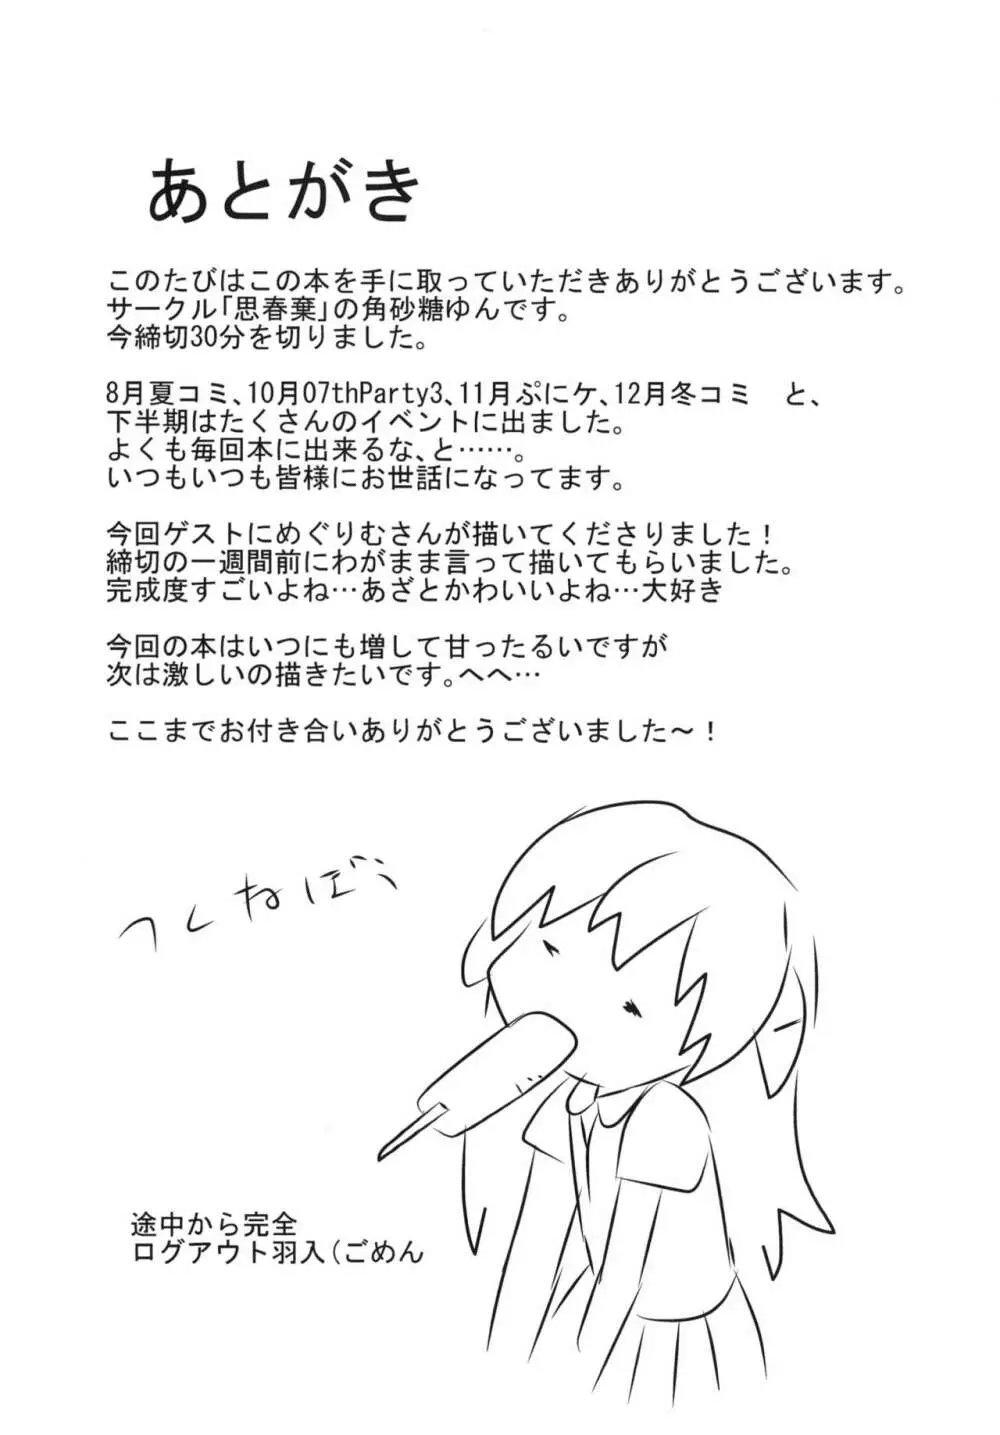 あとがき
このたびはこの本を手に取っていただきありがとうございます。
サークル「思春棄」の角砂糖ゆんです。
今締切30分を切りました。
8月夏コミ、10月07thParty3、11月ぷにケ、12月冬コミ　と、
下半期はたくさんのイベントに出ました。
よくも毎回本に出来るな、と……。
いつもいつも皆様にお世話になってます。
今回ゲストにめぐりむさんが描いてくださりました！
締切の一週間前にわがまま言って描いてもらいました。
完成度すごいよね…あざとかわいいよね…大好き
今回の本はいつにも増して甘ったるいですが
次は激しいの描きたいです。へへ…
ここまでお付き合いありがとうございました～！
つくねぼう
途中から完全
ログアウト羽入（ごめん